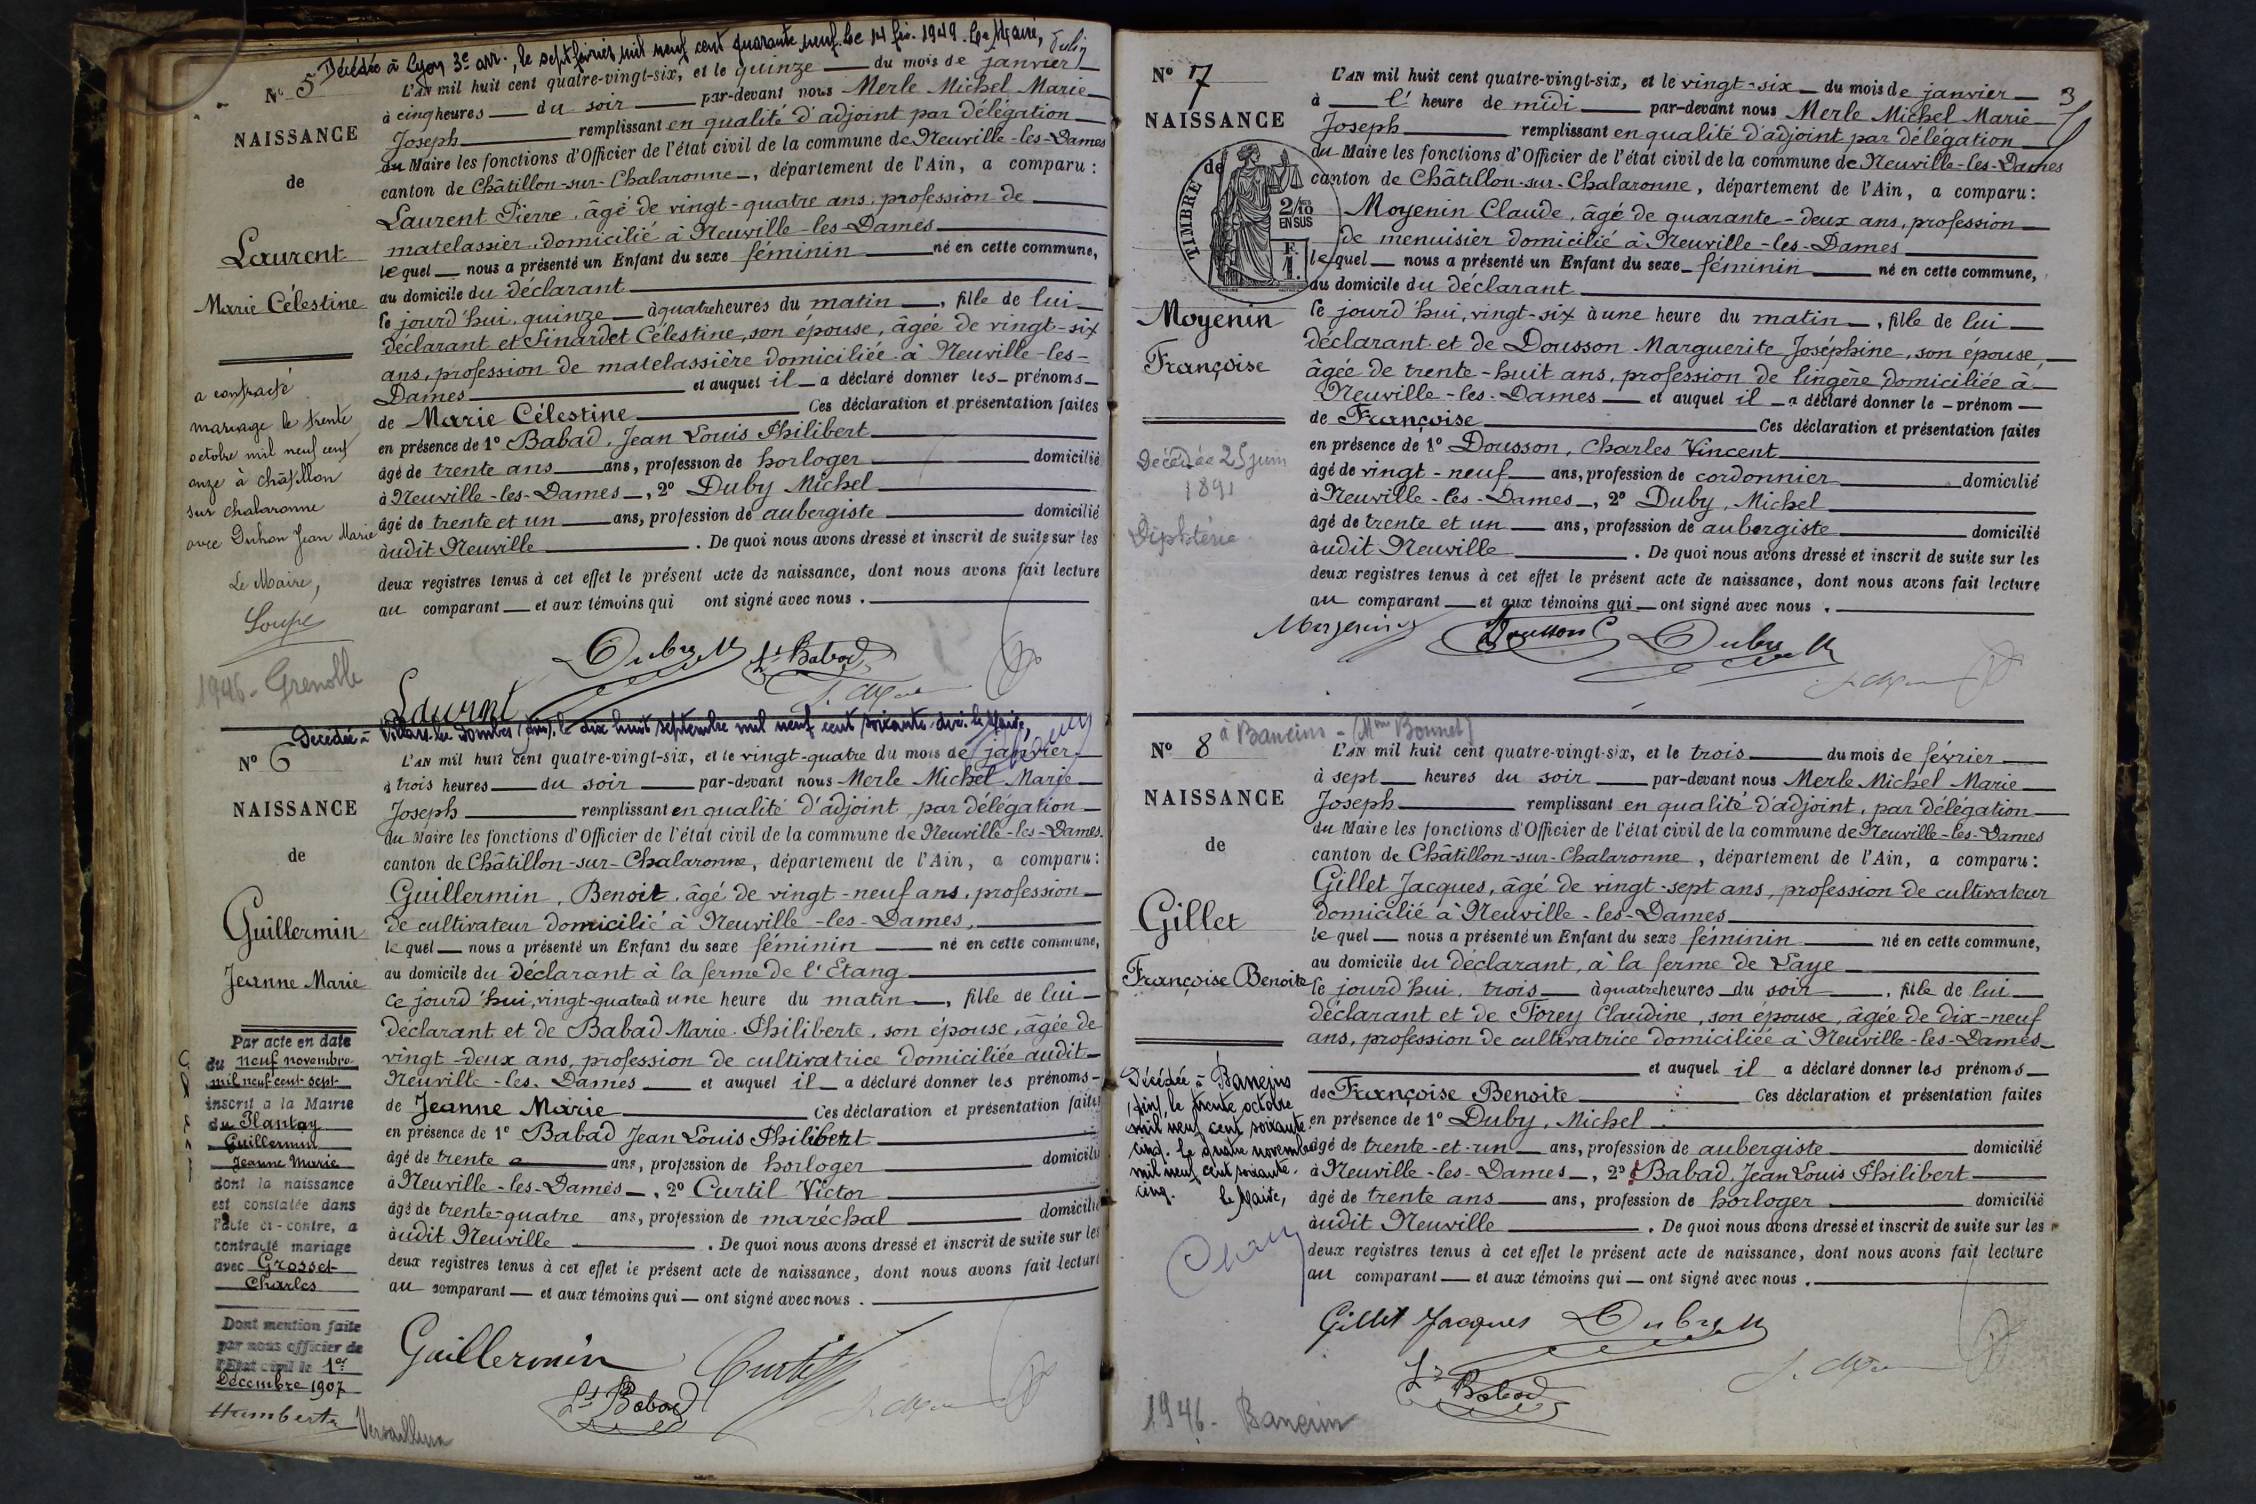 Décédée à Lyon 3e arr., le sept février mil neuf cent quarante neuf. Le 14 fév. 1949. Le Maire,
No 5
NAISSANCE
de
Laurent
Marie Célestine
a contracté
mariage le trente
octobre mil neuf cent
onze à Châtillon
sur chalaronne
avec Duhon Jean Marie
Le Maire,
1946 - Grenoble
L'AN mil huit cent quatre-vingt-six, et le quinze du mois de janvier
à cinq heures du soir par-devant nous Merle Michel Marie
Joseph remplissant en qualité d'adjoint par délégation
du Maire les fonctions d'Officier de l'état civil de la commune de Neuville-les-Dames
canton de Châtillon-sur-Chalaronne, département de l'Ain, a comparu :
Laurent Pierre, âgé de vingt-quatre ans, profession de
matelassier, domicilié à Neuville-les-Dames
lequel nous a présenté un Enfant du sexe féminin né en cette commune,
au domicile du déclarant
le jourd'hui, quinze à quatre heures du matin, fille de lui
déclarant et Sinardet Célestine, son épouse, âgée de vingt-six
ans, profession de matelassière domiciliée à Neuville-les-
Dames et auquel il a déclaré donner les prénoms
de Marie Célestine Ces déclaration et présentation faites
en présence de 1o Babad, Jean Louis Philibert
âgé de trente ans ans, profession de horloger domicilié
à Neuville-les-Dames, 2o Duby Michel
âgé de trente et un ans, profession de aubergiste domicilié
audit Neuville. De quoi nous avons dressé et inscrit de suite sur les
deux registres tenus à cet effet le présent acte de naissance, dont nous avons fait lecture
au comparant et aux témoins qui ont signé avec nous.
Duby M Ls Babad
Laurent
Décédée à Villars les Dombes (Ain), le dix huit septembre mil neuf cent soixante dix. Le Maire,
No 6
NAISSANCE
de
Guillermin
Jeanne Marie
Par acte en date
du neuf novembre
mil neuf cent sept
inscrit à la Mairie
du Plantay
Guillermin
Jeanne Marie
dont la naissance
est constatée dans
l'acte ci-contre, a
contracté mariage
avec Grosset
Charles
Dont mention faite
par nous officier de
l'Etat civil le 1er
Décembre 1907
Humbert
L'AN mil huit cent quatre-vingt-six, et le vingt-quatre du mois de janvier
à trois heures du soir par-devant nous Merle Michel Marie
Joseph remplissant en qualité d'adjoint, par délégation
du Maire les fonctions d'Officier de l'état civil de la commune de Neuville-les-Dames.
canton de Châtillon-sur-Chalaronne, département de l'Ain, a comparu :
Guillermin, Benoit, âgé de vingt-neuf ans, profession
de cultivateur domicilié à Neuville-les-Dames,
lequel nous a présenté un Enfant du sexe féminin né en cette commune,
au domicile du déclarant à la ferme de l'Etang
ce jourd'hui, vingt-quatre à une heure du matin, fille de lui
déclarant et de Babad Marie Philiberte, son épouse, âgée de
vingt-deux ans, profession de cultivatrice domiciliée audit
Neuville-les-Dames et auquel il a déclaré donner les prénoms
de Jeanne Marie Ces déclaration et présentation faites
en présence de 1o Babad Jean Louis Philibert
âgé de trente a ans, profession de horloger domicilié
à Neuville-les-Dames, 2o Curtil Victor
âgé de trente-quatre ans, profession de maréchal domicilié
audit Neuville. De quoi nous avons dressé et inscrit de suite sur les
deux registres tenus à cet effet le présent acte de naissance, dont nous avons fait lecture
au comparant et aux témoins qui ont signé avec nous.
Guillermin Curtil
Ls Babad
No 7
NAISSANCE
de
TIMBRE
2/10
EN SUS
F.
1.
Moyenin
Françoise
Décédée 25 juin
1891
Diphtérie
3
L'AN mil huit cent quatre-vingt-six, et le vingt-six du mois de janvier
à l' heure de midi par-devant nous Merle Michel Marie
Joseph remplissant en qualité d'adjoint par délégation
du Maire les fonctions d'Officier de l'état civil de la commune de Neuville-les-Dames
canton de Châtillon-sur-Chalaronne, département de l'Ain, a comparu :
Moyenin Claude, âgé de quarante-deux ans, profession
de menuisier domicilié à Neuville-les-Dames
lequel nous a présenté un Enfant du sexe féminin né en cette commune,
au domicile du déclarant
le jourd'hui, vingt-six à une heure du matin, fille de lui
déclarant et de Dousson Marguerite Joséphine, son épouse,
âgée de trente-huit ans, profession de lingère domiciliée à
Neuville-les-Dames et auquel il a déclaré donner le prénom
de Françoise Ces déclaration et présentation faites
en présence de 1o Dousson, Charles Vincent
âgé de vingt-neuf ans, profession de cordonnier domicilié
à Neuville-les-Dames, 2o Duby, Michel
âgé de trente et un ans, profession de aubergiste domicilié
audit Neuville. De quoi nous avons dressé et inscrit de suite sur les
deux registres tenus à cet effet le présent acte de naissance, dont nous avons fait lecture
au comparant et aux témoins qui ont signé avec nous.
Moyenin Dousson C Duby M
à Baneins - (Mme Bonnet)
No 8
NAISSANCE
de
Gillet
Françoise Benoite
Décédée à Baneins
(Ain), le trente octobre
mil neuf cent soixante
cinq. Le quatre novembre
mil neuf cent soixante
cinq. Le Maire,
L'AN mil huit cent quatre-vingt-six, et le trois du mois de février
à sept heures du soir par-devant nous Merle Michel Marie
Joseph remplissant en qualité d'adjoint, par délégation
du Maire les fonctions d'Officier de l'état civil de la commune de Neuville-les-Dames
canton de Châtillon-sur-Chalaronne, département de l'Ain, a comparu :
Gillet Jacques, âgé de vingt-sept ans, profession de cultivateur
domicilié à Neuville-les-Dames
lequel nous a présenté un Enfant du sexe féminin né en cette commune,
au domicile du déclarant, à la ferme de Laye
le jourd'hui, trois à quatre heures du soir, fille de lui
déclarant et de Forey Claudine, son épouse, âgée de dix-neuf
ans, profession de cultivatrice domiciliée à Neuville-les-Dames
et auquel il a déclaré donner les prénoms
de Françoise Benoite Ces déclaration et présentation faites
en présence de 1o Duby, Michel
âgé de trente-et-un ans, profession de aubergiste domicilié
à Neuville-les-Dames, 2o Babad, Jean Louis Philibert
âgé de trente ans ans, profession de horloger domicilié
audit Neuville. De quoi nous avons dressé et inscrit de suite sur les
deux registres tenus à cet effet le présent acte de naissance, dont nous avons fait lecture
au comparant et aux témoins qui ont signé avec nous.
Gillet Jacques Duby M
Ls Babad
1946 - Banein